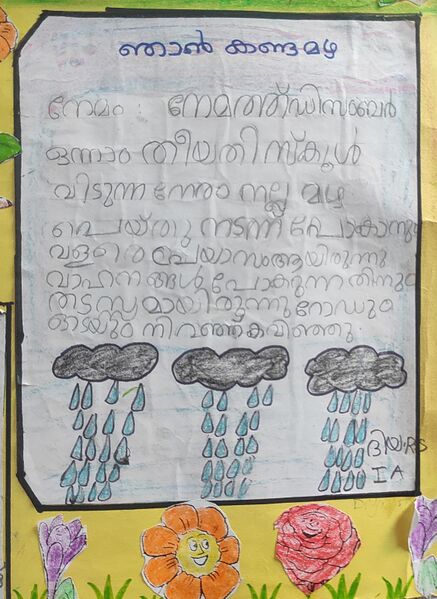 ഞാൻ കണ്ടമഴ
നേമം : നേമത്ത് ഡിസംബർ
ഒന്നാം തീയതി സ്കൂൾ
വിടുന്ന നേരം നല്ല മഴ
പെയ്തു നടന്ന് പോകാനും
വളരെ പ്രയാസംആയിരുന്നു
വാഹനങ്ങൾപോകുന്നതിനും
തടസ്സമായിരുന്നുറോഡും
ഓടയും നിറഞ്ഞ്കവിഞ്ഞു.
ദിയ.R.S
I A